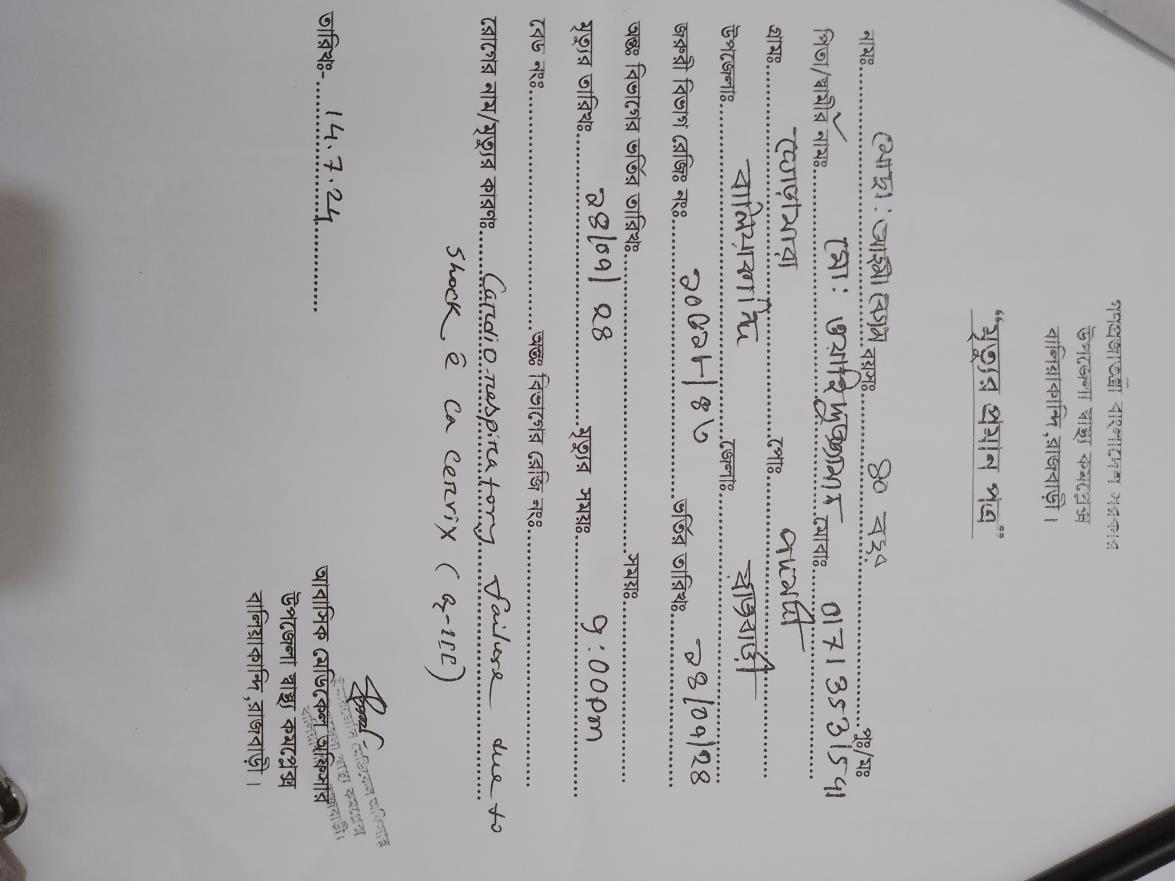 গণপ্রজাতন্ত্রী বাংলাদেশ সরকার
উপজেলা স্বাস্থ্য কমপ্লেক্স
বালিয়াকান্দি,রাজবাড়ী।
“মৃত্যুর প্রমান পত্র”
নামঃ মোছা: বেগম বয়সঃ ৪০ বছর পুঃ/মঃ
পিতা/স্বামীর নামঃ মো: মোবাঃ
গ্রামঃ পোঃ
উপজেলাঃ বালিয়াকান্দি জেলাঃ রাজবাড়ী
জরুরী বিভাগ রেজিঃ নং ভর্তির তারিখঃ ১৪/০৭/২৪
অন্তঃ বিভাগের ভর্তির তারিখঃ সময়ঃ
মৃত্যুর তারিখঃ ১৪/০৭/২৪ মৃত্যুর সময়ঃ ৭:00pm
বেড নংঃ অন্তঃ বিভাগের রেজি নংঃ
রোগের নাম/মৃত্যুর কারণঃ Cardio-respiratory failure due to
shock c̄ ca cervix
তারিখঃ- 14.7.24
আবাসিক মেডিকেল অফিসার
উপজেলা স্বাস্থ্য কমপ্লেক্স
বালিয়াকান্দি,রাজবাড়ী।